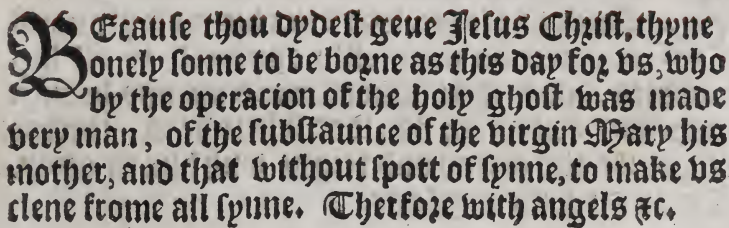 BEcauſe thou dydeſt geue Jeſus Chriſt, thyne
onely ſonne to be borne as this day for vs, who
by the operacion of the holy ghoſt was made
very man, of the ſubſtaunce of the virgin Mary his
mother, and that without ſpott of ſynne, to make vs
clene frome all ſynne. Therfore with angels ⁊c.